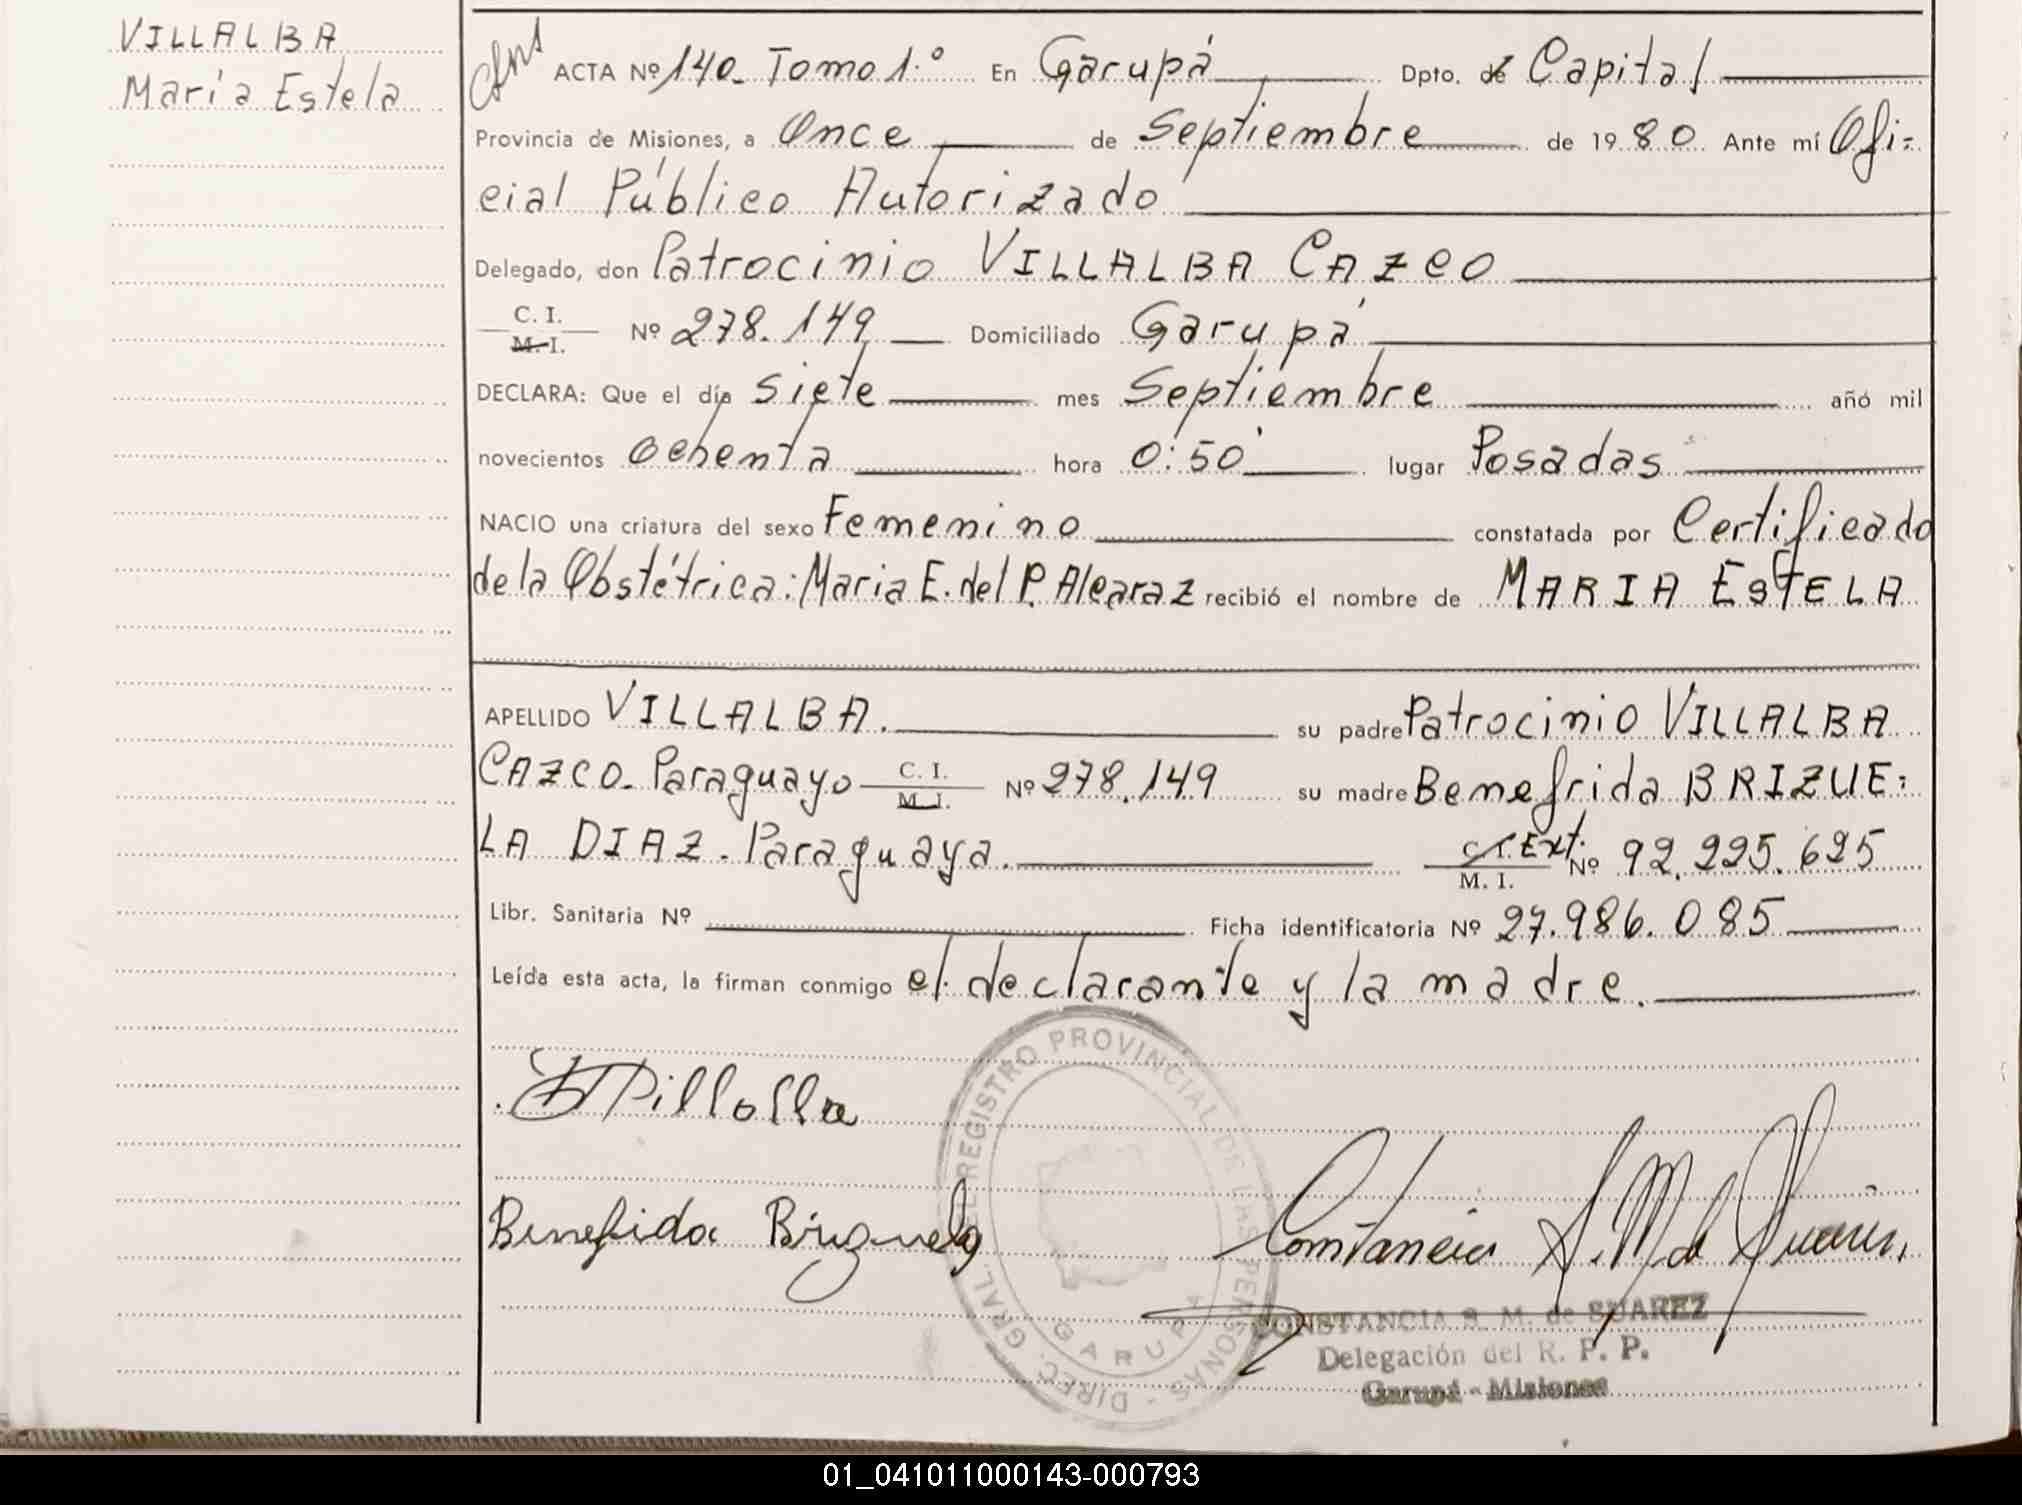 VILLALBA
María Estela
ACTA Nº 140. Tomo 1.º En Garupá Dpto. de Capital
Provincia de Misiones, a Once de Septiembre de 1980. Ante mí Ofi-
cial Público Autorizado
Delegado, don Patrocinio VILLALBA CAZCO
C. I.
M. I. Nº 278.149 Domiciliado Garupá
DECLARA: Que el día siete mes Septiembre añó mil
novecientos ochenta hora 0:50' lugar Posadas
NACIO una criatura del sexo Femenino constatada por Certificado
de la Obstétrica: Maria E. del P. Alcaraz recibió el nombre de MARIA ESTELA
APELLIDO VILLALBA. su padre Patrocinio VILLALBA
CAZCO. Paraguayo C. I. M. I. Nº 278.149 su madre Benefrida BRIZUE-
LA DIAZ. Paraguaya. C. I. Ext. M. I. Nº 92.225.625
Libr. Sanitaria Nº Ficha identificatoria Nº 27.986.085
Leída esta acta, la firman conmigo el declarante y la madre.
DIREC. GRAL. DEL REGISTRO PROVINCIAL DE LAS PERSONAS -
GARUPA
Benefida Brizuela
Constancia S. M. de Suarez
CONSTANCIA S. M. de SUAREZ
Delegación del R. P. P.
Garupá - Misiones
01_041011000143-000793